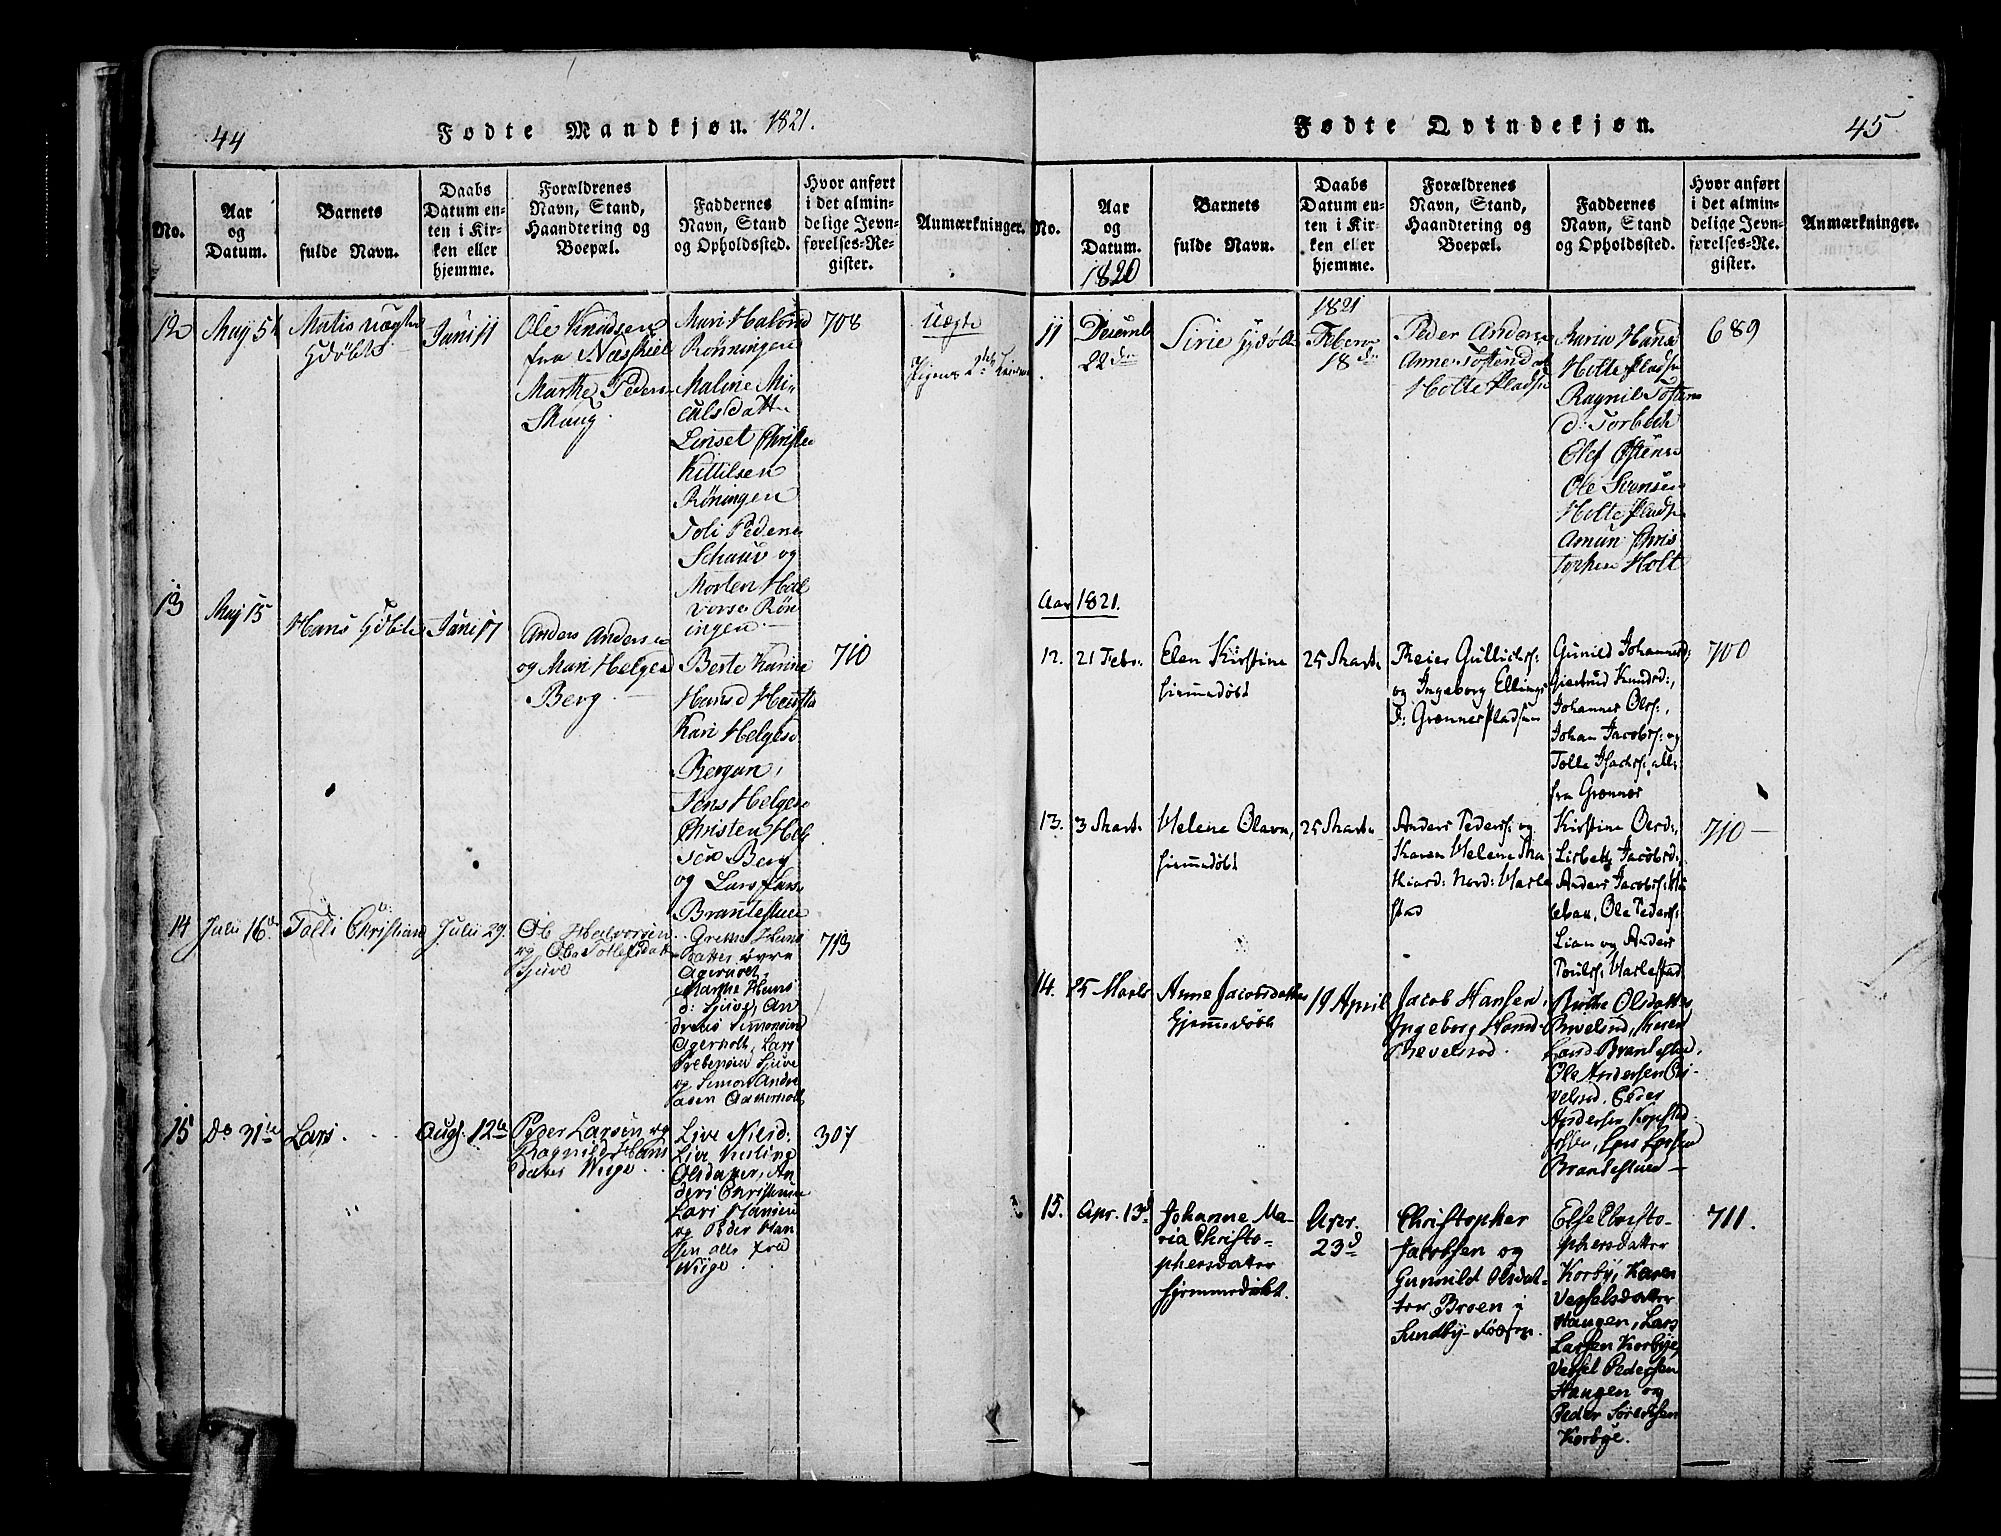 44
Fødte Mandkjøn. 1821.
No.
Aar
og
Datum.
Barnets
fulde Navn.
Daabs
Datum en-
ten i Kir-
ken eller
hjemme.
Forældrenes
Navn, Stand,
Haandtering og
Boepæl.
Faddernes
Navn, Stand
og Opholdssted.
Hvor anført
i det almin-
delige Jevn-
førelses-Re-
gister.
Anmærkninger.
12
May 5
Matis uægte
Hdøbt
Juni 11
Ole Knudsen
fra Næskiel
Marthe Peders
Skaug
Mari Halvord
Rønningen
Maline Mi-
Linset Christen
Kittilsen
Røningen
Toli Peders
Schaur og
Morten Hal
vorse Røn
ingen
708
Uægte
13
May 15
Hans Hdøbt
Juni 17
Anders Anderse
og Mari Helges
Berg
Berte Karine
Hans d
Kari Helges
Bergan,
Jens Helges
Christen
Berg
og Lars Lars
Brantestuen
710
14
Julii 16
Tolli Christian
Julii 29
Ole Halvorsen
og
Tollefsdatt
Ljuve
Grethe Hans
datter øvre
Agerholt,
Marthe Hans
d: Ljuve, An
dreas Simonsen
Agerholt, Lars
Prebensen Ljuve
og Simon Andre
asen Aagerholt
713
15
Do 31te
Lars
Aug. 12
Peder Larsen og
Ragnild Hans
datter Wiige
Live Nilsd:
Live Kirstine
Olsdatter, An
ders Christense
Lars Hansen
og Peder Han
sen alle fra
Wiige
307
Fødte Qvindekjøn.
45
No.
Aar
og
Datum.
1820
Barnets
fulde Navn.
Daabs
Datum en-
ten i Kir-
ken eller
hjemme.
Forældrenes
Navn, Stand,
Haandtering og
Boepæl.
Faddernes
Navn, Stand
og Opholdssted.
Hvor anført
i det almin-
delige Jevn-
førelses-Re-
gister.
Anmærkninger.
11
Decemb
22 den
Sirie Hjdøbt
1821
Februar
18 de
Peder Anders
Anne Tostend at
Holte Pladse
Maria Hans
Holte Pladse
Ragnil Tosten
d: Torbeck
Elef Østense
Ole Svensen
Holte Pladse
Amun Chris
topherse Holt
689
Aar 1821.
12.
21 Febr:
Elen Kirstine
hjemmedøbt
25 Marts
Reier Gullichs:
og Ingeborg Ellings
d: Grønnes Pladsen
Gunild Johannesd:
Giertrud Knudsd:,
Johannes Olss:,
Johan Jacobs: og
Tolle Isachs:, alle
fra Grønnes
700
13.
3 Marts
Helene Olava,
hjemmedøbt
25 Marts
Anders Peders: og
Karen Helene Ma
thiasd: Nord: Harle
stad
Kirstine Olsd:,
Lisbeth Jacobsd:
Anders Jacobs:
Ole Peders:
Lian og Anders
Pouls: Harlestad
710 —
14.
15 Marts
Anne Jacobsdatter
hjemmedøbt
19 April
Jacob Hansen,
Ingeborg Hansd
Prevelsrød.
Berthe Olsdatter
Prevelsrd, Karen
Larsd Brantestuen,
Ole Andersen Pri-
velsrd, Peder
Andersen Kopstad
Lars Larsen
Brantestuen —
15.
Apr. 13d
Johanne Ma-
ria Christo-
phersdatter
hjemmedøbt.
Apr.
23d
Christopher
Jacobsen og
Gunnild Olsdat-
ter Broen i
Sundby-Fossen.
Else Christo-
phersdatter
Korby, Karen
Vesselsdatter
Haugen, Lars
Larsen Korbye,
Vessel Pedersen
Haugen og
Peder Sørensen
Korbye.
711.